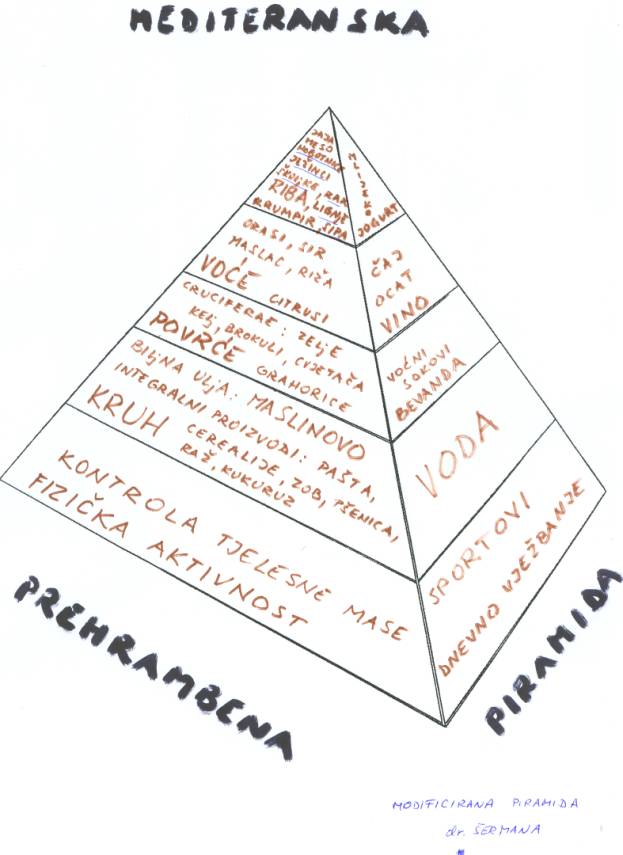 MEDITERANSKA
JAJA
MESO
HOBOTNICE
JEŽINCI
ŠKOLJKE, RAK
RIBA, LIGNJE
KRUMPIR, SIPA
MLIJEKO
JOGURT
ORASI, SIR
MASLAC, RIŽA
VOĆE CITRUSI
ČAJ
OCAT
VINO
CRUCIFERAE: ZELJE
KELJ, BROKULI, CVJETAČA
POVRĆE GRAHORICE
VOĆNI
SOKOVI
BEVANDA
BILJNA ULJA: MASLINOVO
INTEGRALNI PROIZVODI: PAŠTA,
KRUH CEREALIJE, ZOB, PŠENICA,
RAŽ, KUKURUZ
VODA
KONTROLA TJELESNE MASE
FIZIČKA AKTIVNOST
SPORTOVI
DNEVNO VJEŽBANJE
PREHRAMBENA
PIRAMIDA
MODIFICIRANA PIRAMIDA
dr. ŠERMANA